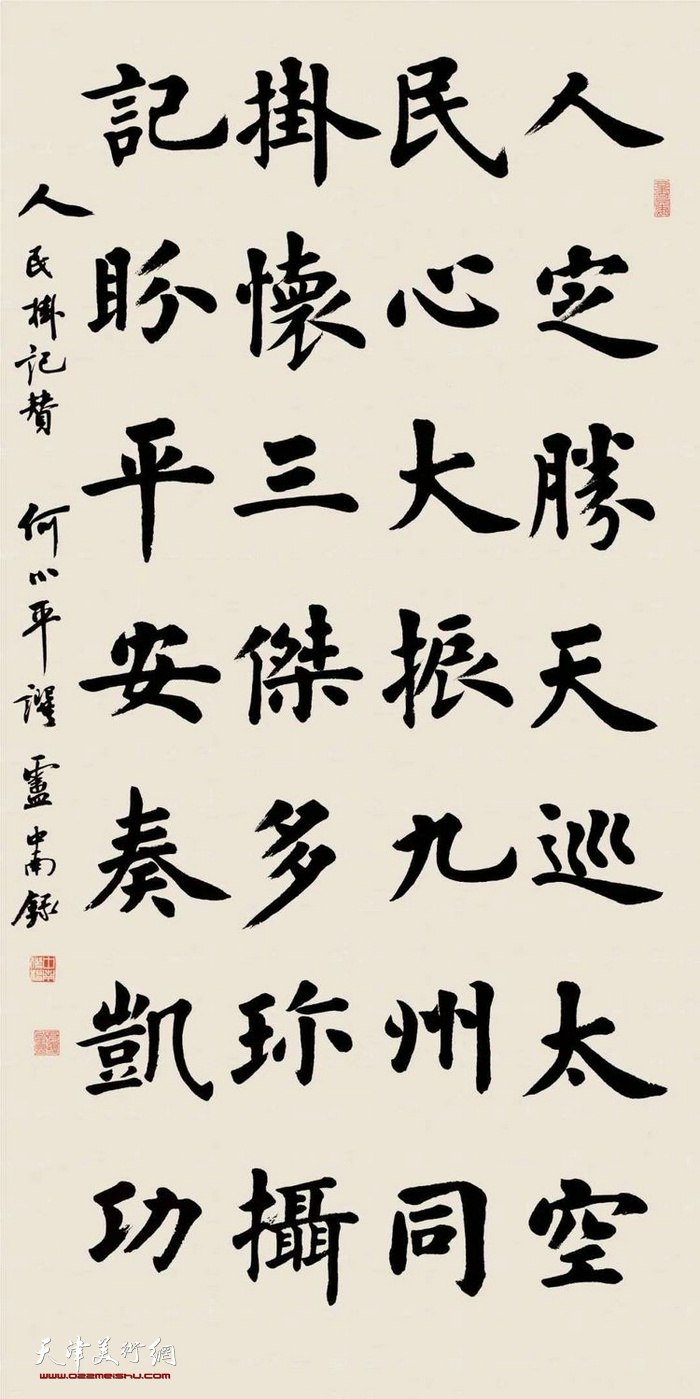 人定勝天巡太空
民心大振九州同
掛懷三傑多珎攝
記盼平安奏凱功
人民掛記贊 何小平譔 盧中南錄
天津美術網
www.022meishu.com